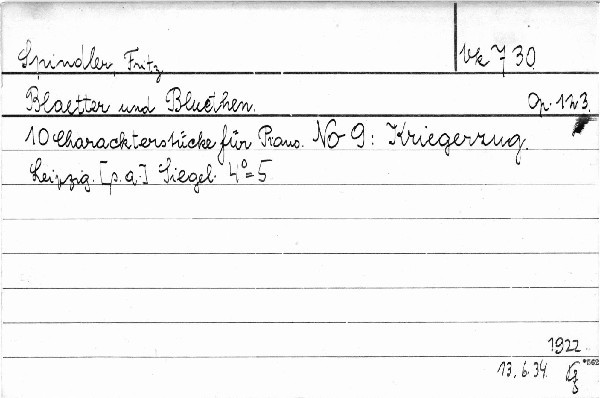 Spindler, Fritz
Vk 730
Blaetter und Bluethen. Op. 123.
10 Charackterstücke für Piano. No 9: Kriegerzug.
Leipzig. [s.a.] Siegel. 4° = 5
1922
13.6.34.